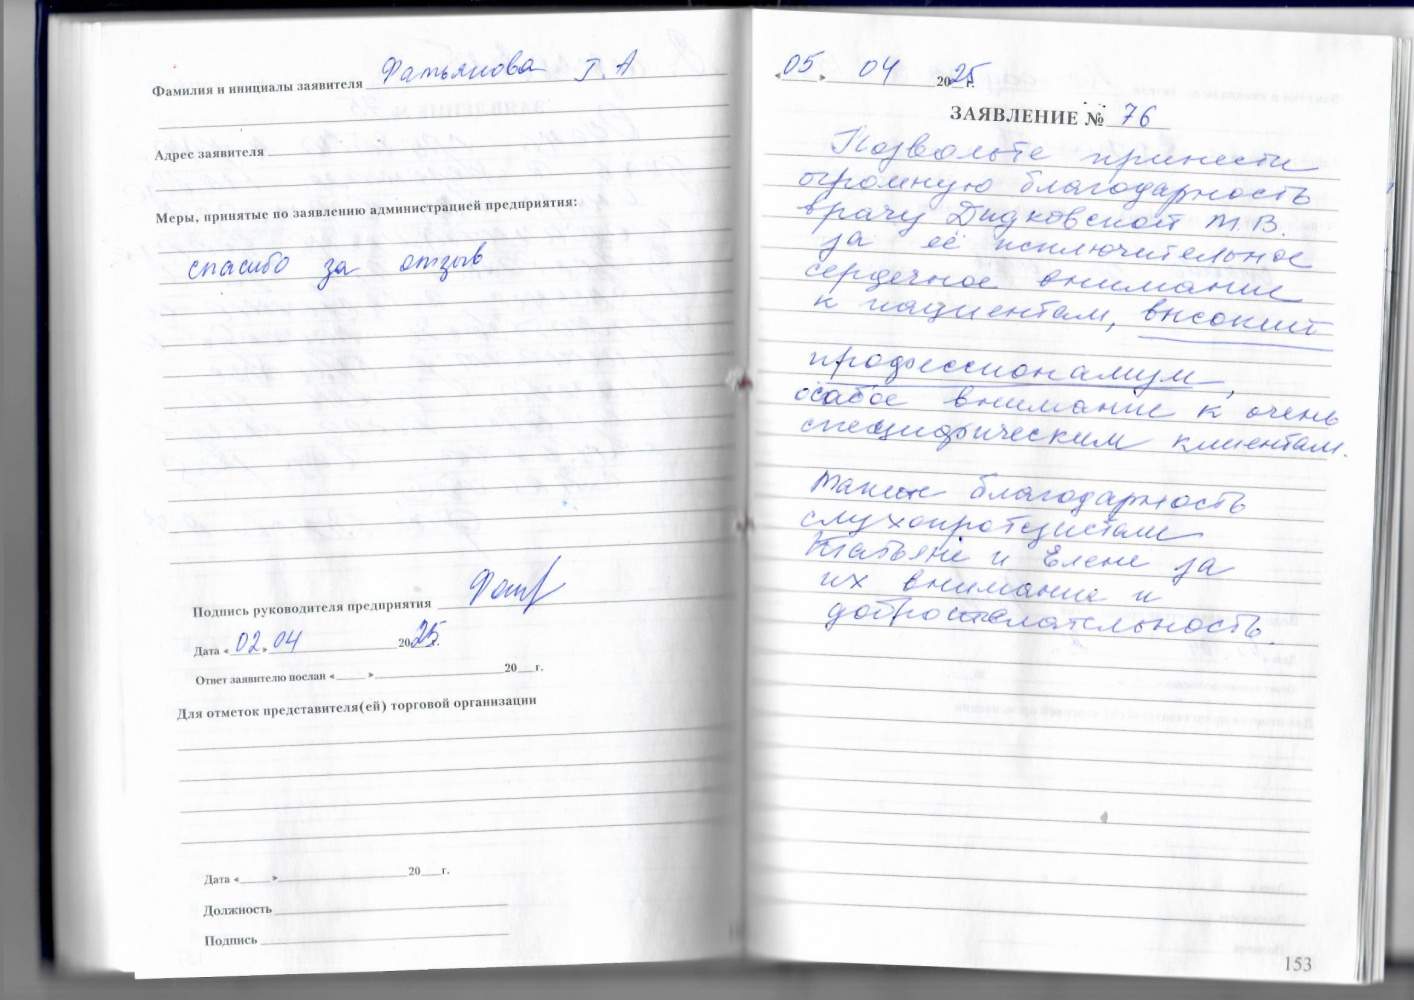 Фамилия и инициалы заявителя Фатьянова Г. А
Адрес заявителя
Меры, принятые по заявлению администрацией предприятия:
спасибо за отзыв
Подпись руководителя предприятия
Дата « 02 » 04 2025г.
Ответ заявителю послан «___» ___ 20___г.
Для отметок представителя(ей) торговой организации
Дата «___» ___ 20___г.
Должность
Подпись
« 05 » 04 2025г.
ЗАЯВЛЕНИЕ № 76
Позвольте принести
огромную благодарность
врачу Дидковской М.В.
за её исключительное
сердечное внимание
к пациентам, высокий
профессионализм,
особое внимание к очень
специфическим клиентам.
Также благодарность
слухопротезистам
Татьяне и Елене за
их внимание и
доброжелательность.
153